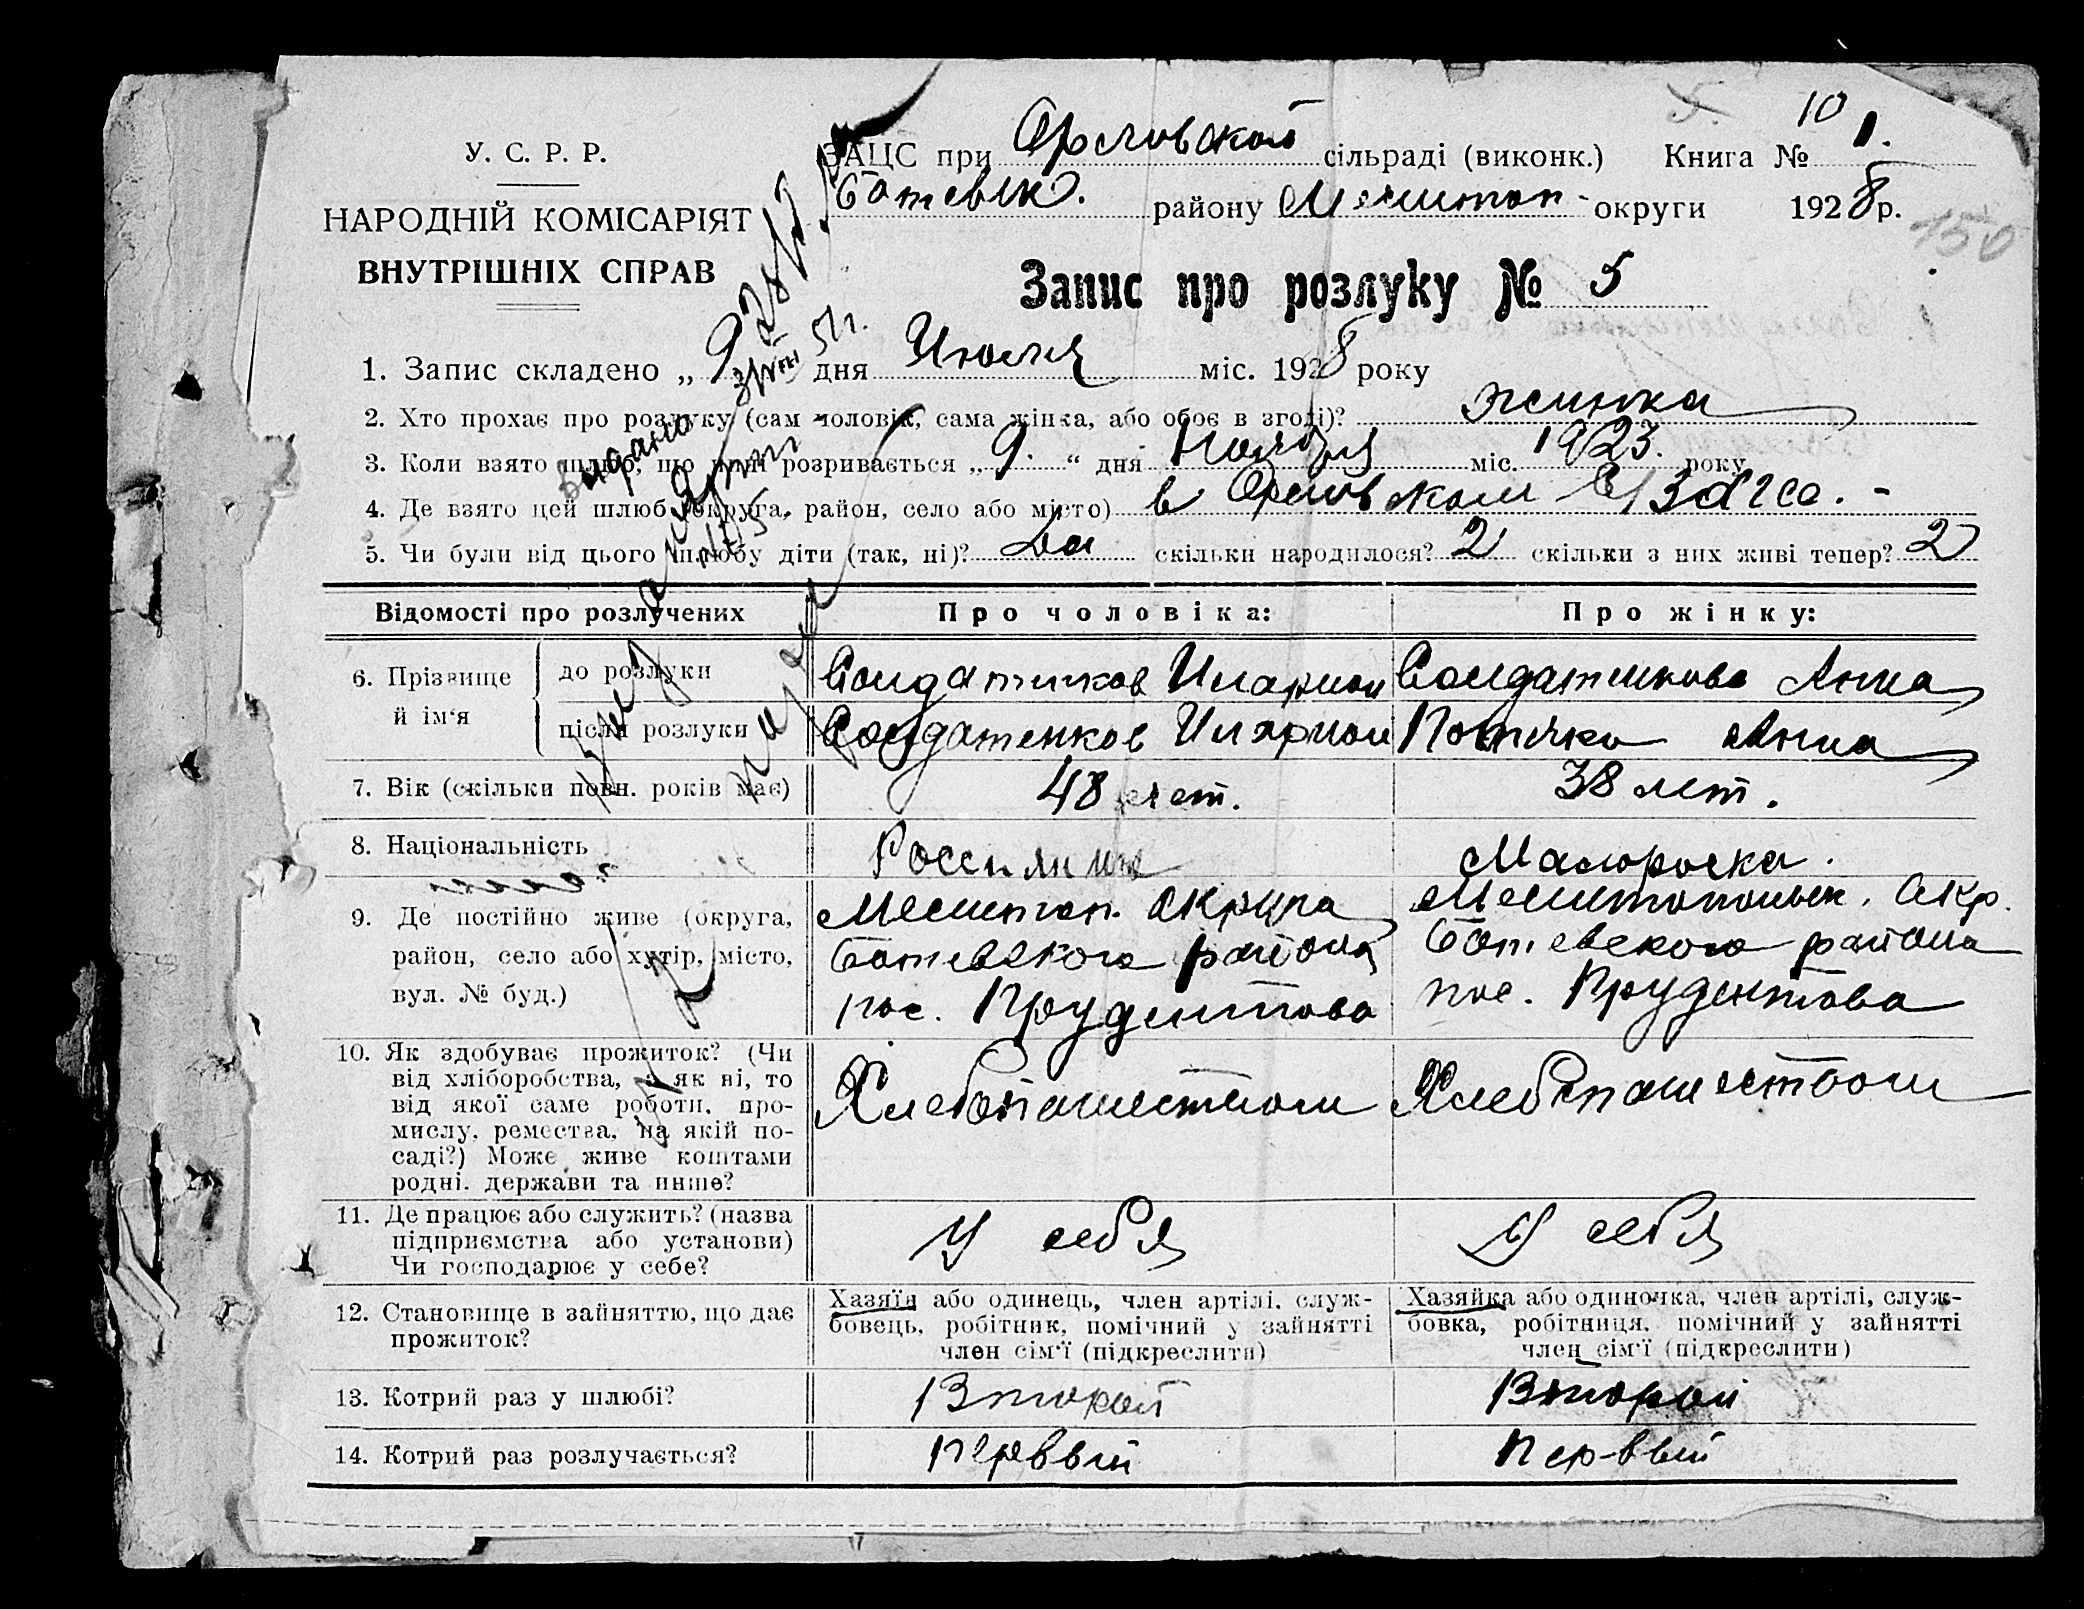 10
У. С. Р. Р.
НАРОДНІЙ КОМІСАРІЯТ
ВНУТРІШНІХ СПРАВ
ЗАЦС при Орловской сільраді (виконк.) Книга № 1.
Ботевск. району Мелитоп- округи 1928 р.
150
Запис про розлуку № 5
1. Запис складено „ 9 дня Июля міс. 1928 року
2. Хто прохає про розлуку (сам чоловік, сама жінка, або обоє в згоді)? жинка
3. Коли взято шлюб, що нині розривається „ 9. “ дня Ноября міс. 1923. року
4. Де взято цей шлюб (округа, район, село або місто) в Орловском ЗАГСе. -
5. Чи були від цього шлюбу діти (так, ні)? Да скільки народилося? 2 скільки з них живі тепер? 2
Відомості про розлучених Про чоловіка: Про жінку:
6. Прізвище й ім‘я
до розлуки Солдатенков Иларион Солдатенкова Анна
після розлуки Солдатенков Иларион Анна
7. Вік (скільки повн. років має) 48 лет. 38 лет.
8. Національність Россиянин Малороска.
9. Де постійно живе (округа, район, село або хутір, місто, вул. № буд.)
Мелитоп. округа
Ботевского района
пос. Прудентова
Мелитопольск. окр.
Ботевского района
пос. Прудентова
10. Як здобуває прожиток? (Чи
від хліборобства, а як ні, то
від якої саме роботи, про-
мислу, ремества, на якій по-
саді?) Може живе коштами
родні, держави та инше?
Хлебопашеством Хлебопашеством
11. Де працює або служить? (назва
підприємства або установи)
Чи господарює у себе?
У себя У себя
12. Становище в зайняттю, що дає
прожиток?
Хазяїн або одинець, член артілі, служ-
бовець, робітник, помічний у зайнятті
член сім‘ї (підкреслити)
Хазяйка або одиночка, член артілі, служ-
бовка, робітниця, помічний у зайнятті
член сім‘ї (підкреслити)
13. Котрий раз у шлюбі? Второй Второй
14. Котрий раз розлучається? Первый Первый